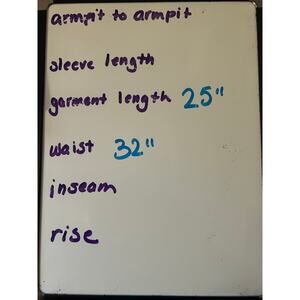 armpit to armpit
sleeve length
garment length 25"
waist 32"
inseam
rise